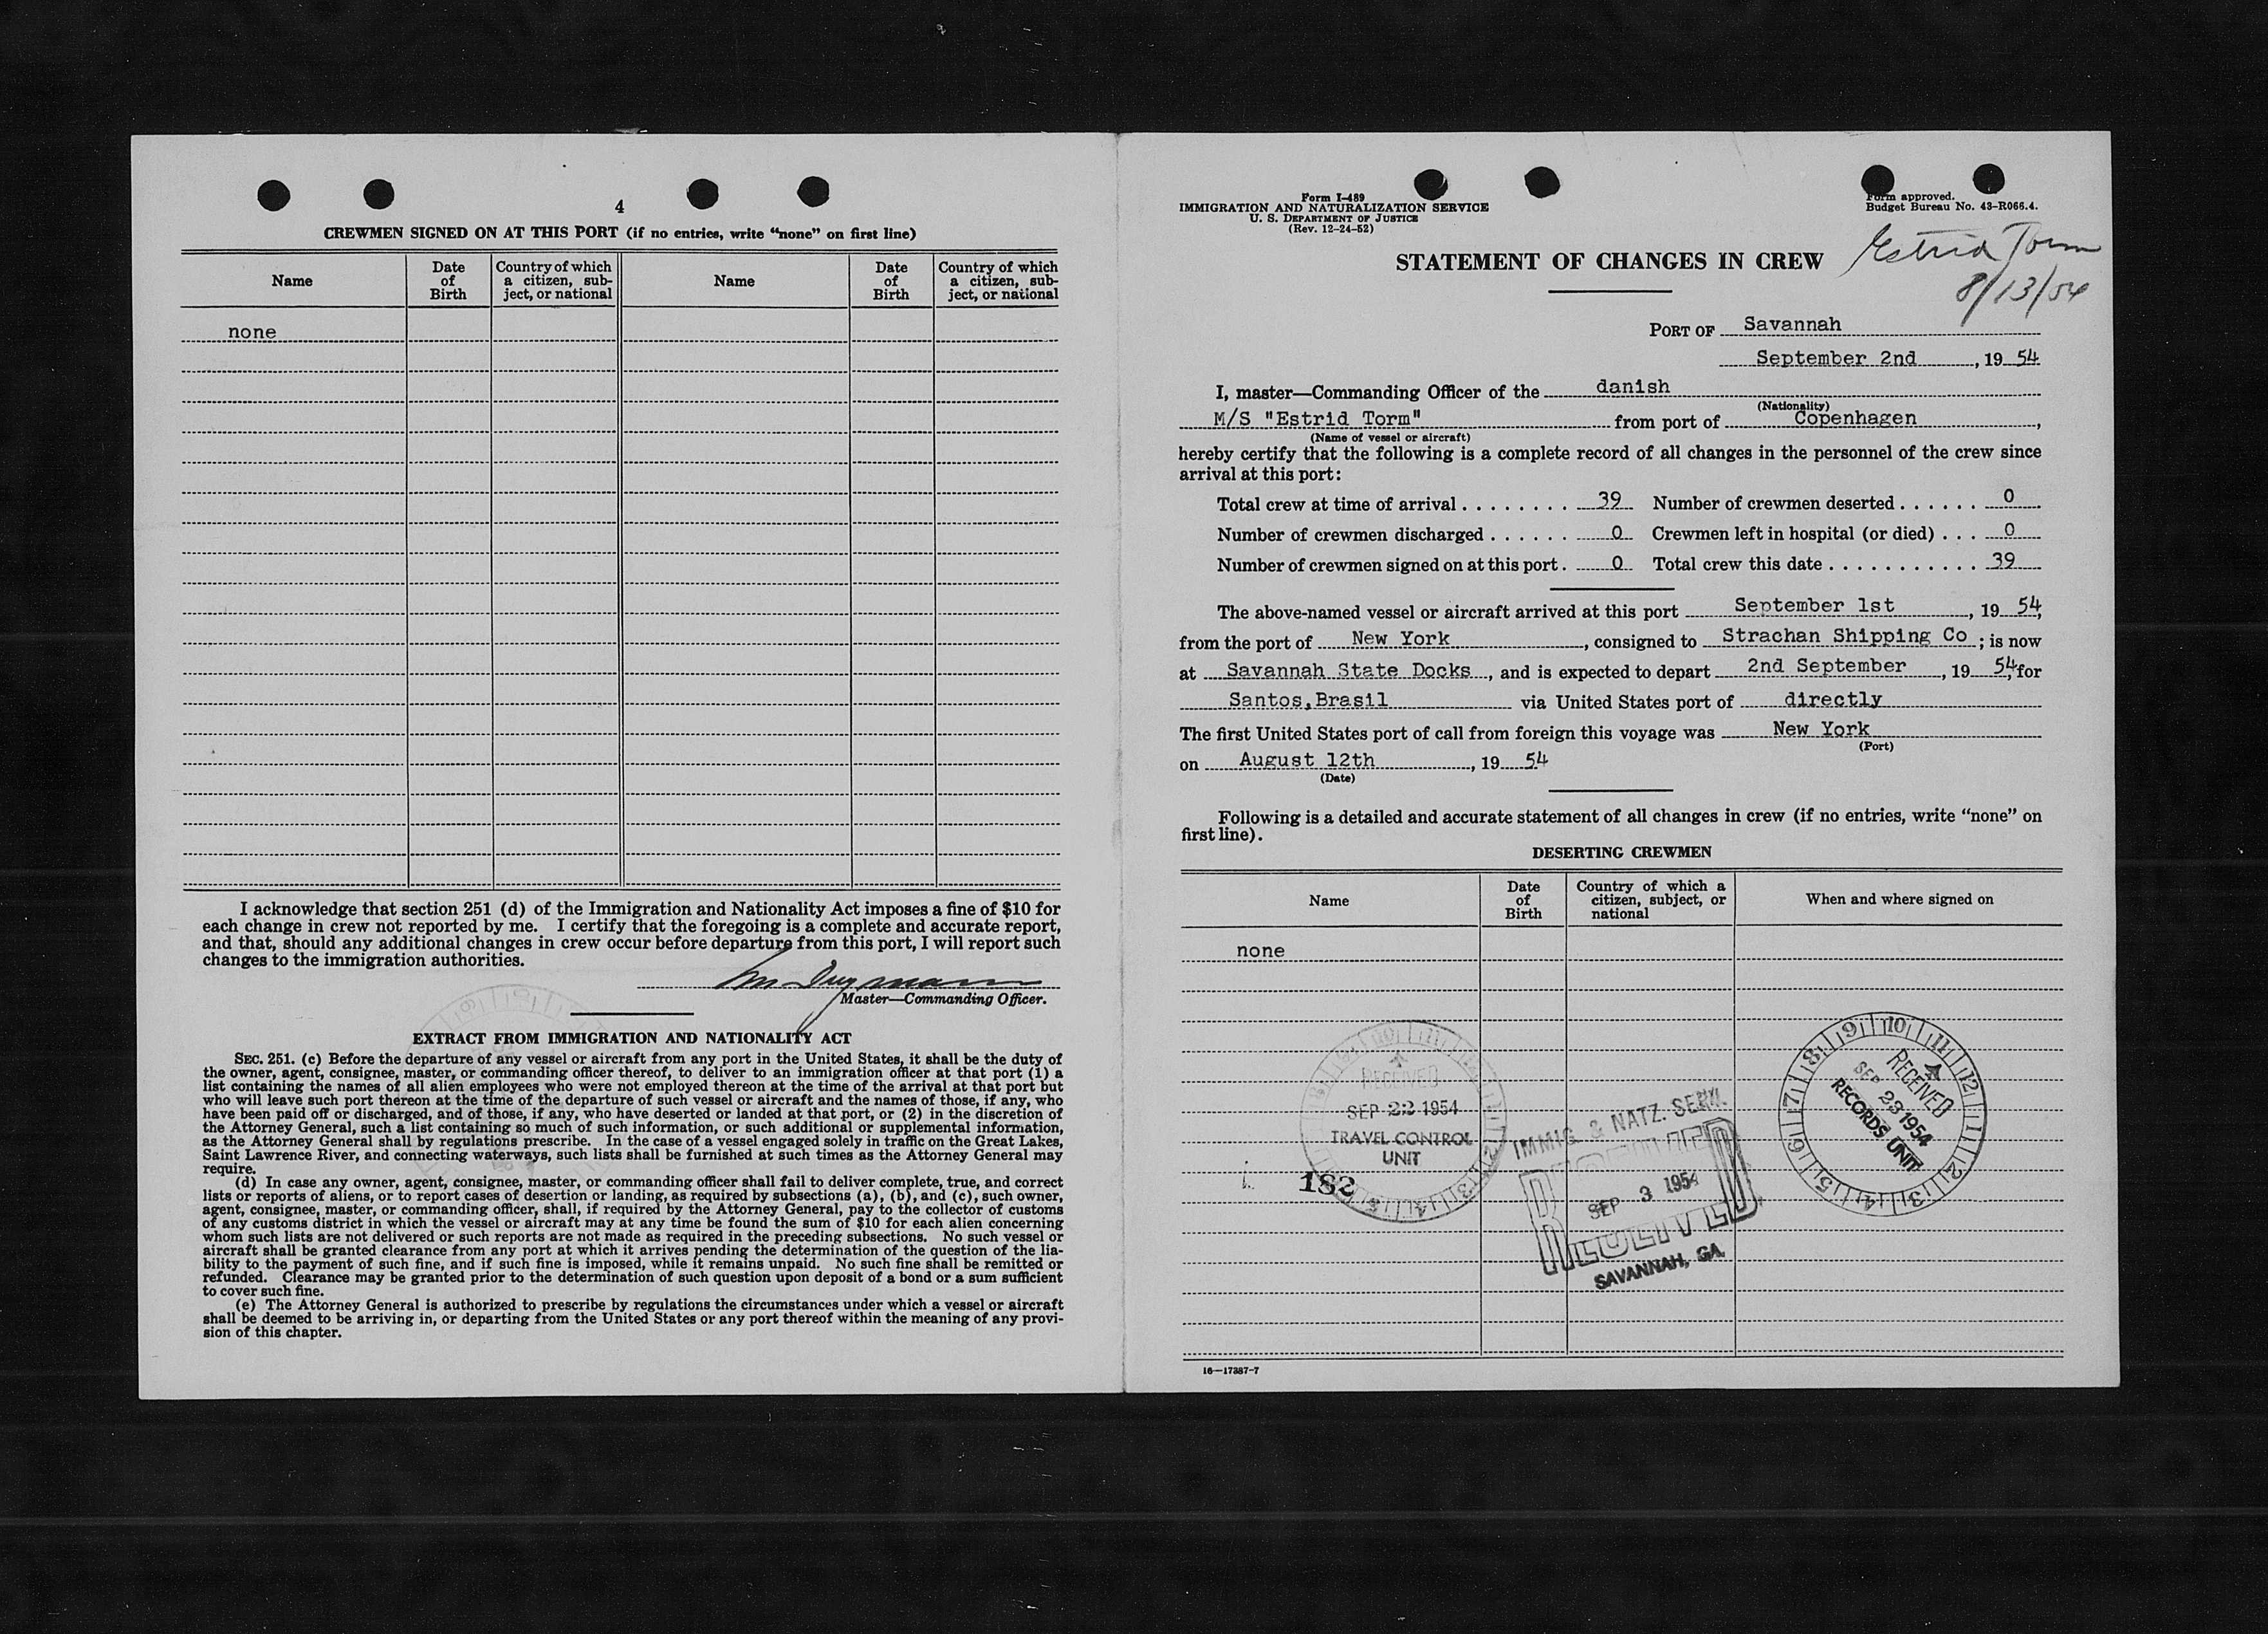 4
CREWMEN SIGNED ON AT THIS PORT (if no entries, write “none” on first line)
Name
Date of Birth
Country of which a citizen, subject, or national
Name
Date of Birth
Country of which a citizen, subject, or national
none
I acknowledge that section 251 (d) of the Immigration and Nationality Act imposes a fine of $10 for
each change in crew not reported by me. I certify that the foregoing is a complete and accurate report,
and that, should any additional changes in crew occur before departure from this port, I will report such
changes to the immigration authorities.
Master—Commanding Officer.
EXTRACT FROM IMMIGRATION AND NATIONALITY ACT
SEC. 251. (c) Before the departure of any vessel or aircraft from any port in the United States, it shall be the duty of
the owner, agent, consignee, master, or commanding officer thereof, to deliver to an immigration officer at that port (1) a
list containing the names of all alien employees who were not employed thereon at the time of the arrival at that port but
who will leave such port thereon at the time of the departure of such vessel or aircraft and the names of those, if any, who
have been paid off or discharged, and of those, if any, who have deserted or landed at that port, or (2) in the discretion of
the Attorney General, such a list containing so much of such information, or such additional or supplemental information,
as the Attorney General shall by regulations prescribe. In the case of a vessel engaged solely in traffic on the Great Lakes,
Saint Lawrence River, and connecting waterways, such lists shall be furnished at such times as the Attorney General may
require.
(d) In case any owner, agent, consignee, master, or commanding officer shall fail to deliver complete, true, and correct
lists or reports of aliens, or to report cases of desertion or landing, as required by subsections (a), (b), and (c), such owner,
agent, consignee, master, or commanding officer, shall, if required by the Attorney General, pay to the collector of customs
of any customs district in which the vessel or aircraft may at any time be found the sum of $10 for each alien concerning
whom such lists are not delivered or such reports are not made as required in the preceding subsections. No such vessel or
aircraft shall be granted clearance from any port at which it arrives pending the determination of the question of the lia-
bility to the payment of such fine, and if such fine is imposed, while it remains unpaid. No such fine shall be remitted or
refunded. Clearance may be granted prior to the determination of such question upon deposit of a bond or a sum sufficient
to cover such fine.
(e) The Attorney General is authorized to prescribe by regulations the circumstances under which a vessel or aircraft
shall be deemed to be arriving in, or departing from the United States or any port thereof within the meaning of any provi-
sion of this chapter.
Form I-489
IMMIGRATION AND NATURALIZATION SERVICE
U. S. DEPARTMENT OF JUSTICE
(Rev. 12-24-52)
Form approved.
Budget Bureau No. 43-R066.4.
STATEMENT OF CHANGES IN CREW
Estrid Torm
8/13/54
PORT OF Savannah
September 2nd, 19 54
I, master—Commanding Officer of the danish
(Nationality)
M/S "Estrid Torm" from port of Copenhagen,
(Name of vessel or aircraft)
hereby certify that the following is a complete record of all changes in the personnel of the crew since
arrival at this port:
Total crew at time of arrival 39 Number of crewmen deserted 0
Number of crewmen discharged 0 Crewmen left in hospital (or died) 0
Number of crewmen signed on at this port 0 Total crew this date 39
The above-named vessel or aircraft arrived at this port September 1st, 19 54,
from the port of New York, consigned to Strachan Shipping Co; is now
at Savannah State Docks, and is expected to depart 2nd September, 19 54, for
Santos,Brasil via United States port of directly
The first United States port of call from foreign this voyage was New York
(Port)
on August 12th, 19 54
(Date)
Following is a detailed and accurate statement of all changes in crew (if no entries, write “none” on
first line).
DESERTING CREWMEN
Name
Date of Birth
Country of which a citizen, subject, or national
When and where signed on
none
RECEIVED
SEP 22 1954
TRAVEL CONTROL
UNIT
182
IMMIG. & NATZ. SERV.
RECEIVED
SEP 3 1954
SAVANNAH, GA.
RECEIVED
SEP 23 1954
RECORDS UNIT
16—17387-7